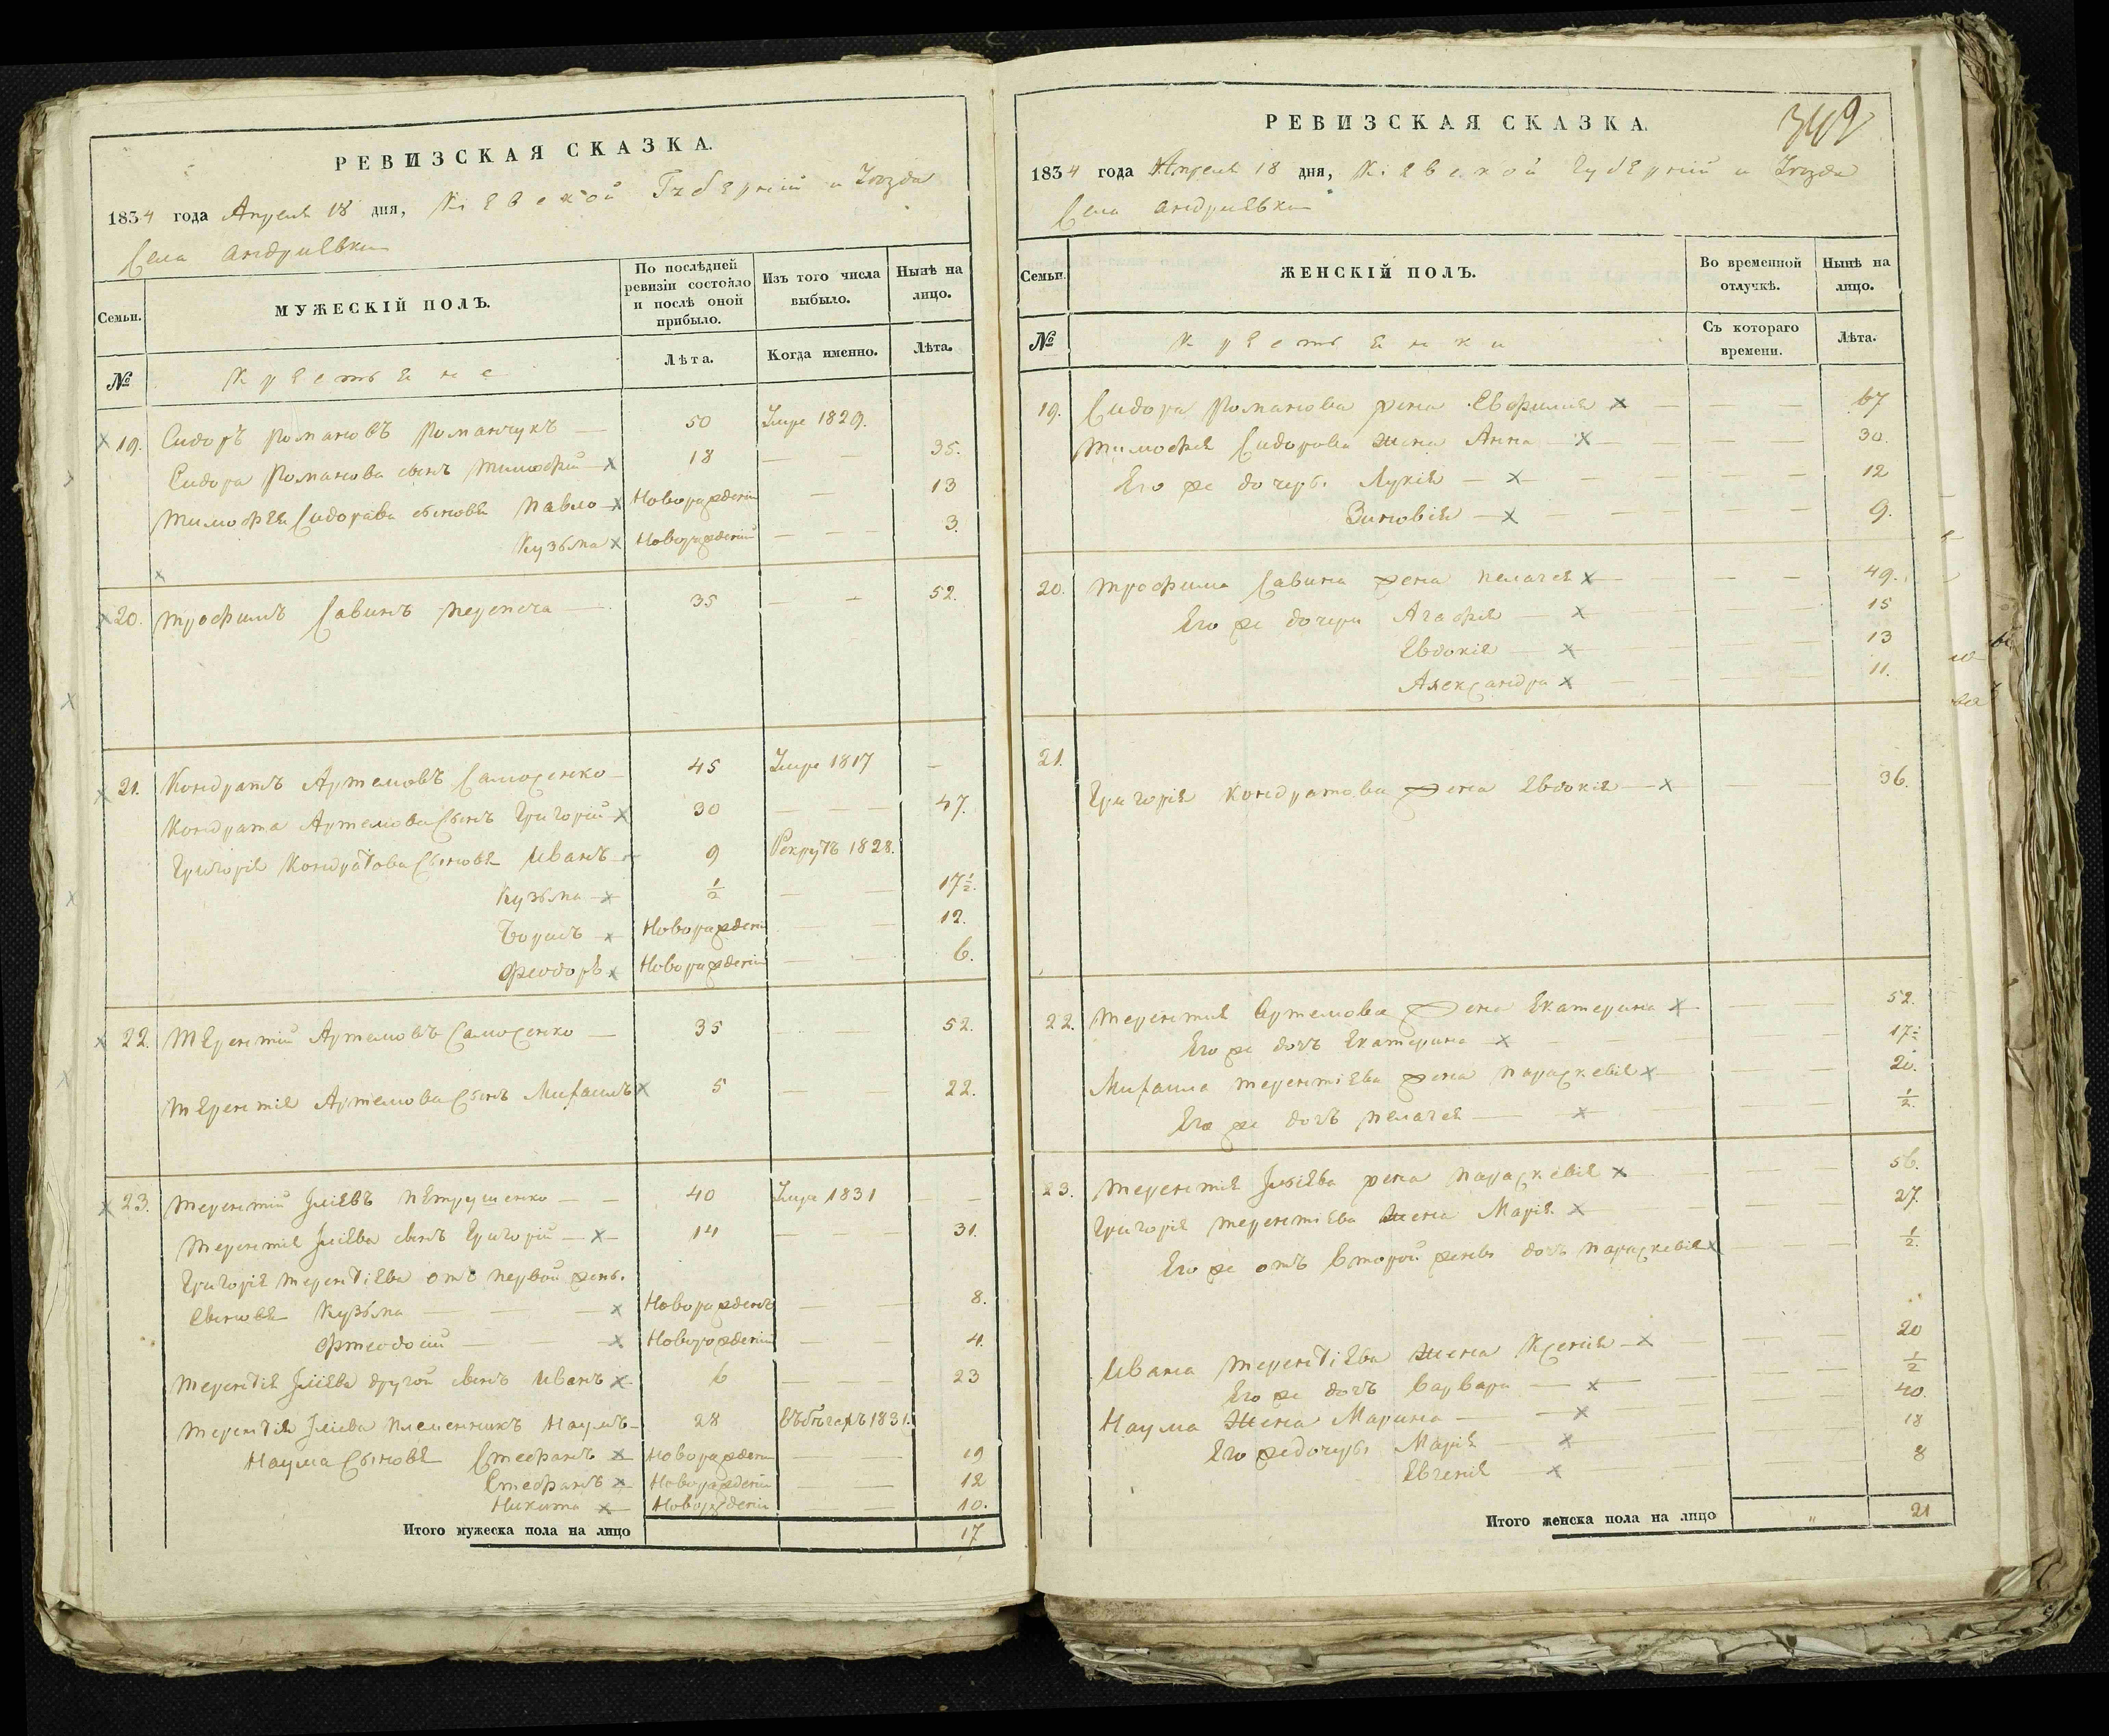 РЕВИЗСКАЯ СКАЗКА.
1834 года Апреля 18 дня, Кіевской Губерніи и Уѣзда
Села Андриевки
Семьи.
МУЖЕСКІЙ ПОЛЪ.
По послѣдней ревизіи состояло и послѣ оной прибыло.
Изъ того числа выбыло.
Нынѣ на лицо.
№
Крестьяне
Лѣта.
Когда именно.
Лѣта.
19. Сидоръ Романовъ Романчукъ — 50 Умре 1829.
Сидора Романова сынъ Тимофей × 18 — — 35.
Тимофея Сидорова сыновья Павло × Новорожденный — 13
Кузьма × Новорожденный — — 3.
20. Трофимъ Савинъ Перепеча — 35 — — 52.
21. Кондратъ Артемовъ Самосенко — 45 Умре 1817 —
Кондрата Артемова сынъ Григорій × 30 — — 47.
Григорія Кондратова сыновья Иванъ — 9 Рекрутъ 1828.
Кузьма × ½ — — 17½.
Борисъ × Новорожденный — — 12.
Феодоръ × Новорожденный — — 6.
22. Терентій Артемовъ Самосенко — 35 — — 52.
Терентія Артемова сынъ Михаилъ × 5 — — 22.
23. Терентій Іліевъ Петрушенко — — 40 Умре 1831 — —
Терентія Іліева сынъ Григорій — × 14 — — — 31.
Григорія Терентіева отъ первой жены
сыновья Кузьма — — — × Новорожденъ — — 8.
Фтеодосій — — × Новорожденный — — 4.
Терентія Іліева другой сынъ Иванъ × 6 — — — 23
Терентія Іліева племенникъ Наумъ — 28 Въ бѣгахъ 1831.
Наума сыновья Стефанъ × Новорожденный — — 19
Стефанъ × Новорожденный — — 12
Никита × Новорожденный — — 10.
Итого мужеска пола на лицо 17
349
РЕВИЗСКАЯ СКАЗКА.
1834 года Апреля 18 дня, Кіевской Губерніи и Уѣзда
Села Андриевки
Семьи.
ЖЕНСКІЙ ПОЛЪ.
Во временной отлучкѣ.
Нынѣ на лицо.
№
Крестьянки
Съ котораго времени.
Лѣта.
19. Сидора Романова жена Евфимия × — — — 67
Тимофея Сидорова жена Анна — × — — — 30.
Его же дочерь Лукія — × — — — 12
Зиновія — × — — — 9.
20. Трофима Савина жена Пелагея × — — — 49.
Его же дочери Агафія — × — — 15
Евдокія — × — — 13
Александра × — — 11.
21.
Григорія Кондратова жена Евдокія — × — — 36.
22. Терентия Артемова жена Екатерина × — — 52.
Его же дочъ Екатерина — × — — 17½
Михаила Терентіева жена Параскевія × — — 20.
Его же дочъ Пелагея — × — — ½.
23. Терентия Іліева жена Параскевія × — — 56.
Григорія Терентіева жена Марія × — — 27.
Его же отъ второй жены дочъ Параскевія × — — ½.
Ивана Терентіева жена Ксенія — × — — 20
Его же дочъ Варвара — × — — ½
Наума жена Марина — — × — — 40.
Его же дочерь Марія — × — — 18
Евгенія — × — — 8
Итого женска пола на лицо „ 21